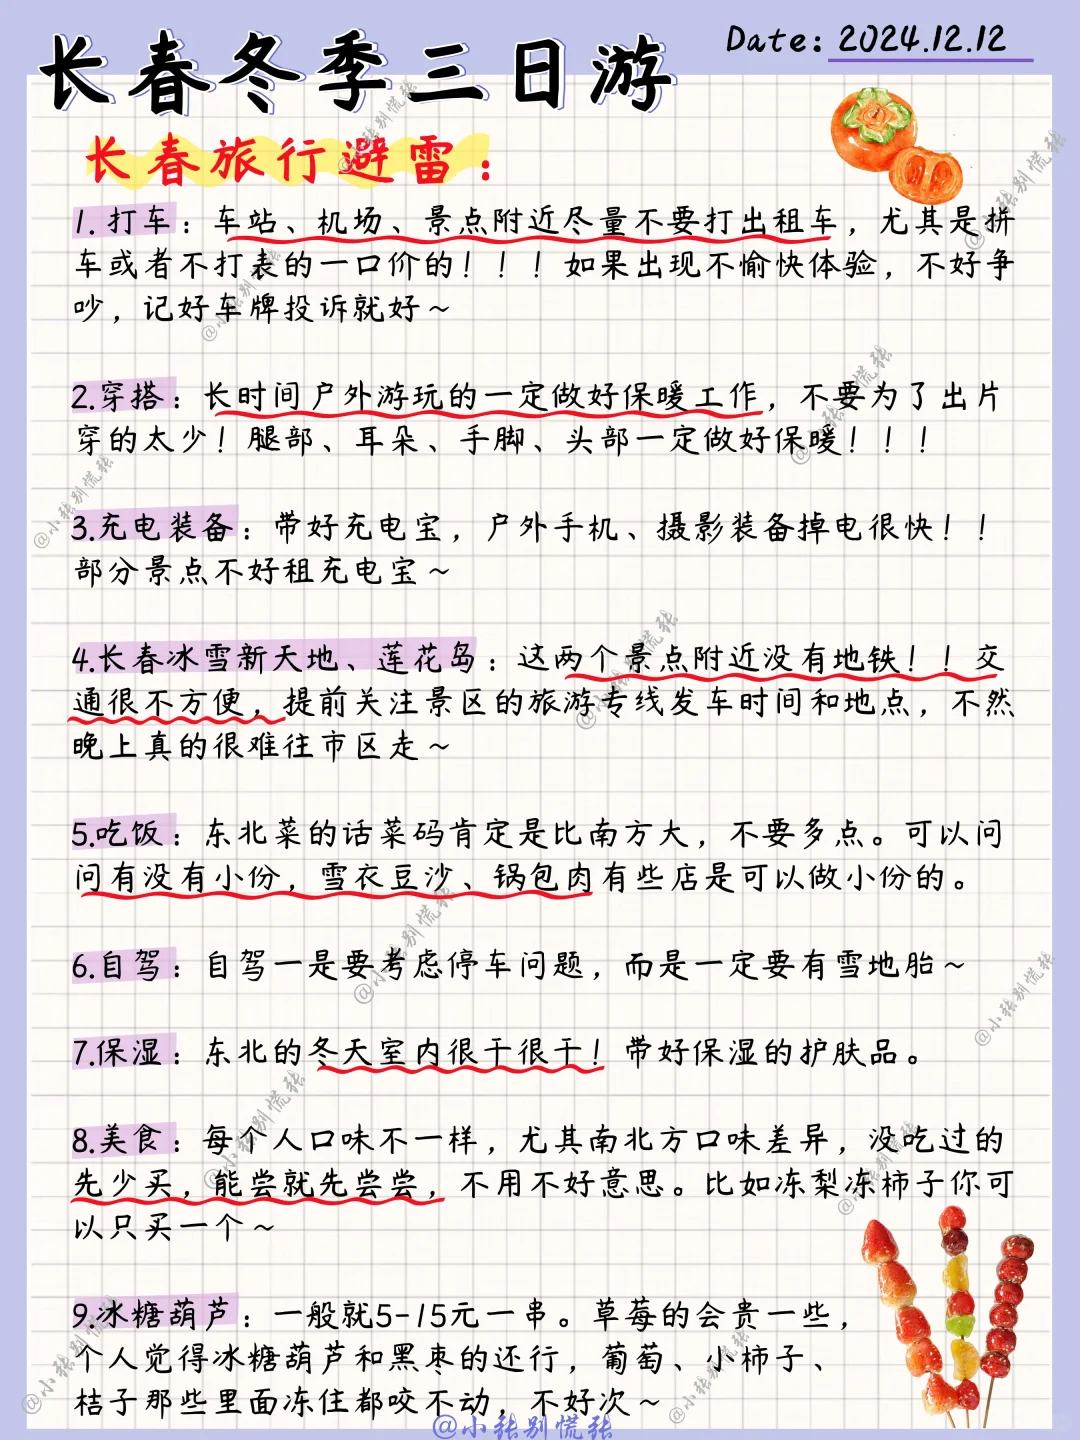 长春冬季三日游
Date: 2024.12.12
长春旅行避雷：
1.打车：车站、机场、景点附近尽量不要打出租车，尤其是拼
车或者不打表的一口价的！！！如果出现不愉快体验，不好争
吵，记好车牌投诉就好~
2.穿搭：长时间户外游玩的一定做好保暖工作，不要为了出片
穿的太少！腿部、耳朵、手脚、头部一定做好保暖！！！
3.充电装备：带好充电宝，户外手机、摄影装备掉电很快！！
部分景点不好租充电宝~
4.长春冰雪新天地、莲花岛：这两个景点附近没有地铁！！交
通很不方便，提前关注景区的旅游专线发车时间和地点，不然
晚上真的很难往市区走~
5.吃饭：东北菜的话菜码肯定是比南方大，不要多点。可以问
问有没有小份，雪衣豆沙、锅包肉有些店是可以做小份的。
6.自驾：自驾一是要考虑停车问题，而是一定要有雪地胎~
7.保湿：东北的冬天室内很干很干！带好保湿的护肤品。
8.美食：每个人口味不一样，尤其南北方口味差异，没吃过的
先少买，能尝就先尝尝，不用不好意思。比如冻梨冻柿子你可
以只买一个~
9.冰糖葫芦：一般就5-15元一串。草莓的会贵一些，
个人觉得冰糖葫芦和黑枣的还行，葡萄、小柿子、
桔子那些里面冻住都咬不动，不好次~
@小张别慌张
@小张别慌张
@小张别慌张
@小张别慌张
@小张别慌张
@小张别慌张
@小张别慌张
@小张别慌张
@小张别慌张
@小张别慌张
@小张别慌张
@小张别慌张
@小张别慌张